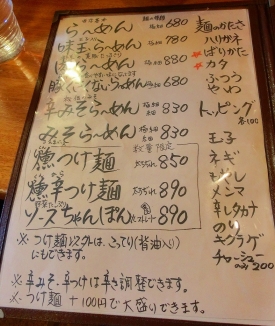 らーめん 680
味玉らーめん 780
らーめん 880
830
辛みそらーめん 830
みそらーめん 830
数量限定
燻つけ麺 850
燻辛つけ麺 890
ソースちゃんぽん 890
※つけ麺以外は、こってり(背油入り)
にもできます。
※辛みそ、辛つけは辛さ調整できます。
※つけ麺 +100円で大盛りできます。
麺のかたさ
ハリガネ
ばりかた
カタ
ふつう
やわ
トッピング
各100
玉子
ネギ
もやし
メンマ
辛しタカナ
のり
キクラゲ
チャーシュー
のみ200